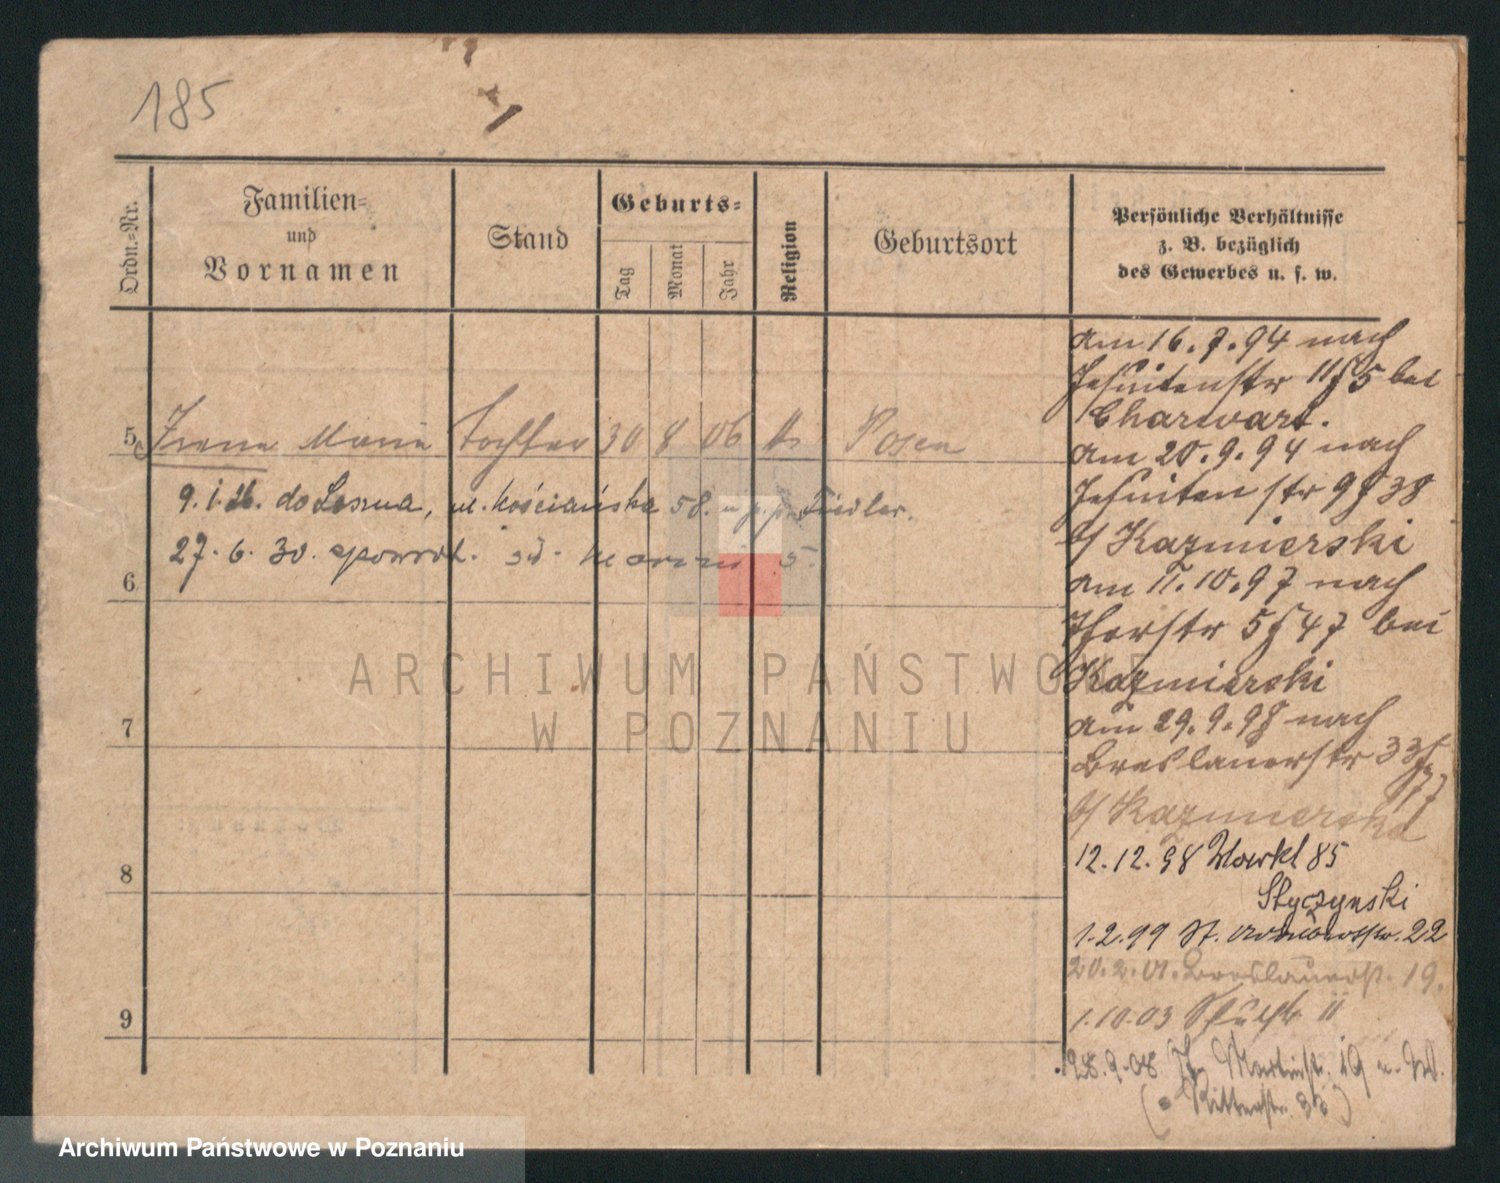 185
Ordn.-Nr.
Familien-
und
Vornamen
Stand
Geburts-
Tag
Monat
Jahr
Religion
Geburtsort
Persönliche Verhältnisse
z. B. bezüglich
des Gewerbes u. s. w.
am 16.7.94 nach
Jesuitenstr 11/5 bei
Charwart.
am 20.9.94 nach
Jesuitenstr 9/38
b/ Kazmierski
am 11.10.97 nach
Thorstr 5/47 bei
Kazmierski
am 29.9.98 nach
Breslauerstr 33/
b/ Kazmierska
12.12.98 Markt 85
Styczynski
1.2.99 St. Adalbertstr. 22
20.2.01. Breslauerst. 19.
1.10.03 11
28.9.08 St. Martinstr. 19
Ritterstr.
5 Irene Marie Tochter 30 8 06 k Posen
9.1.26. do Leszna, ul. Kościańska 58. u p. Fiedler.
27.6.30. spowrot. 5.
6
7
8
9
ARCHIWUM PAŃSTWOWE
W POZNANIU
Archiwum Państwowe w Poznaniu